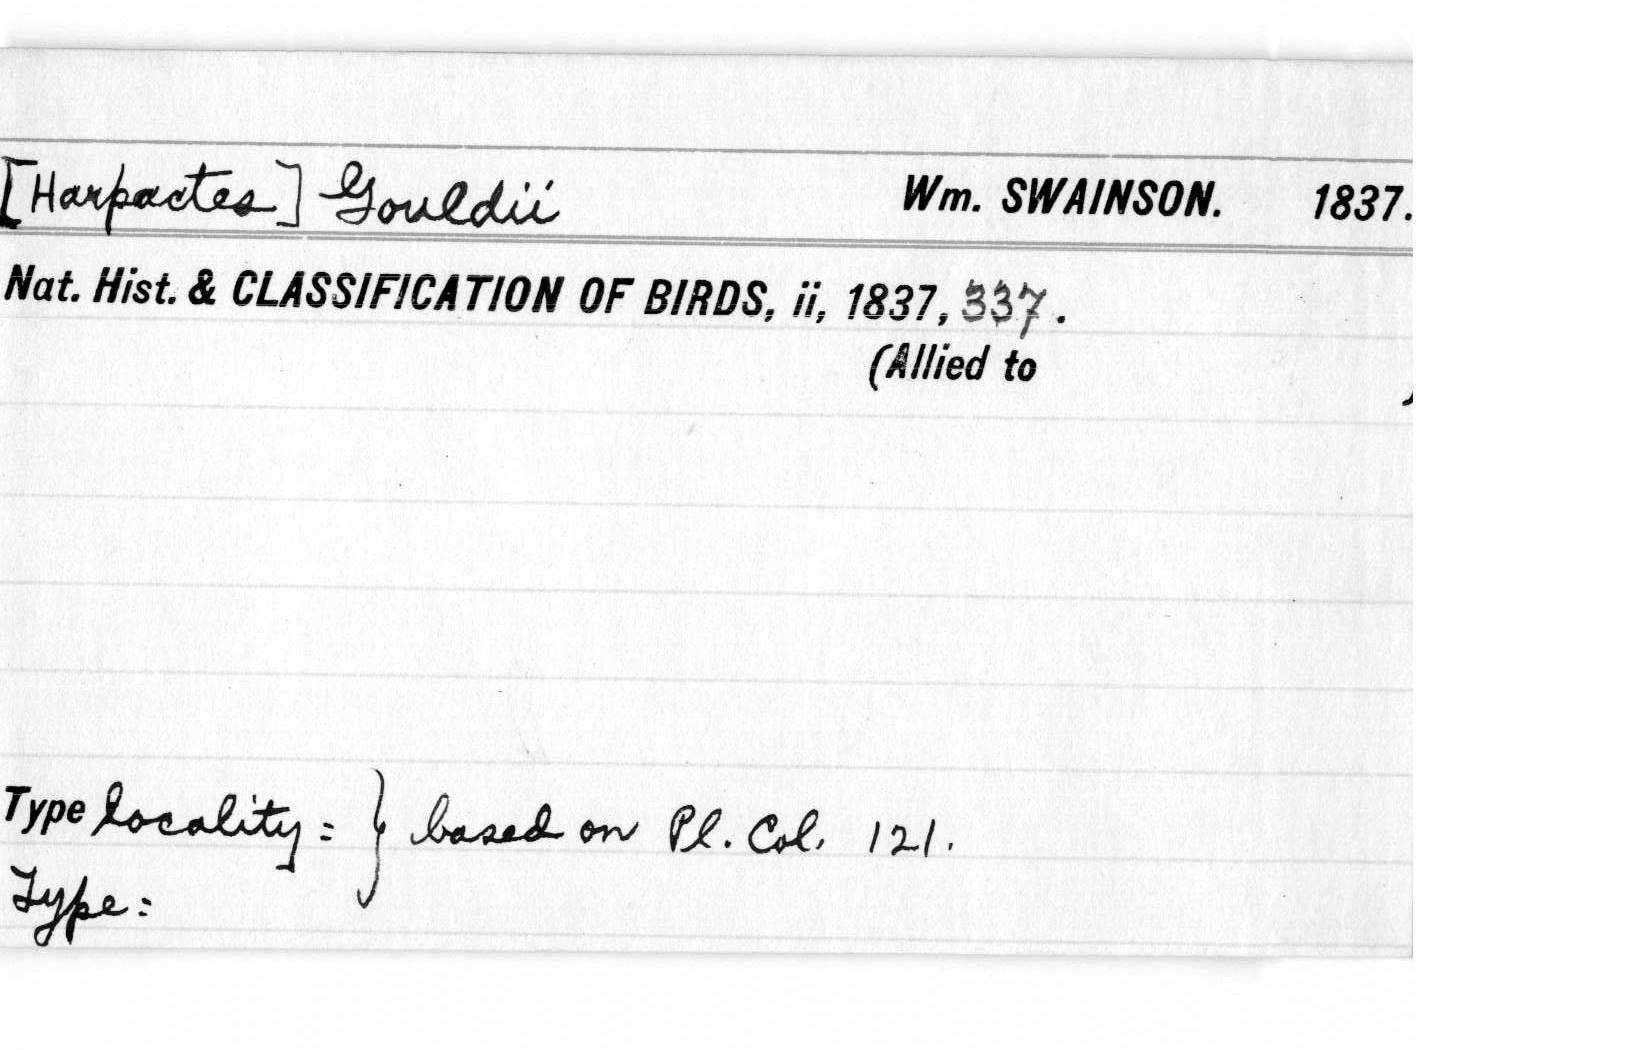 [Harpactes] Gouldii Wm. SWAINSON. 1837.
Nat. Hist. & CLASSIFICATION OF BIRDS, ii, 1837, 337.
(Allied to )
Type locality = } based on Pl. Col. 121.
Type =